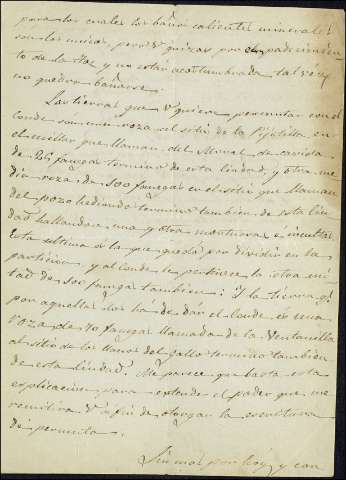 para los cuales los baños calientes minerales
son los unicos, pero V. quizas por el padecimien
to de la tos y no estar acostumbrada tal vez
no querra bañarse.
Las tierras que V. quiere permutar con el
Conde son una roza al sitio de la Pijotilla en
el millar que llaman del Moral de
de 225 fanegas termino de esta Ciudad, y otra me
dia roza de 500 fanegas en el sitio que llaman
del pozo hediondo termino tambien de esta Ciu
dad hallandose una y otra montuosas é incultas
Esta ultima es la que quedó por dividir en la
particion, y al Conde le pertenece la otra mi
tad de 500 fanegas tambien: Y la tierra q.
por aquellas los há de dár el Conde es una
roza de 70 fanegas llamada de la Ventanilla
al sitio de los llanos del gallo termino tambien
de esta Ciudad. Me parece que basta esta
explicacion para extender el poder que me
remitira V. a fin de otorgar la escritura
de permuta.
Sin mas por hoy, y con